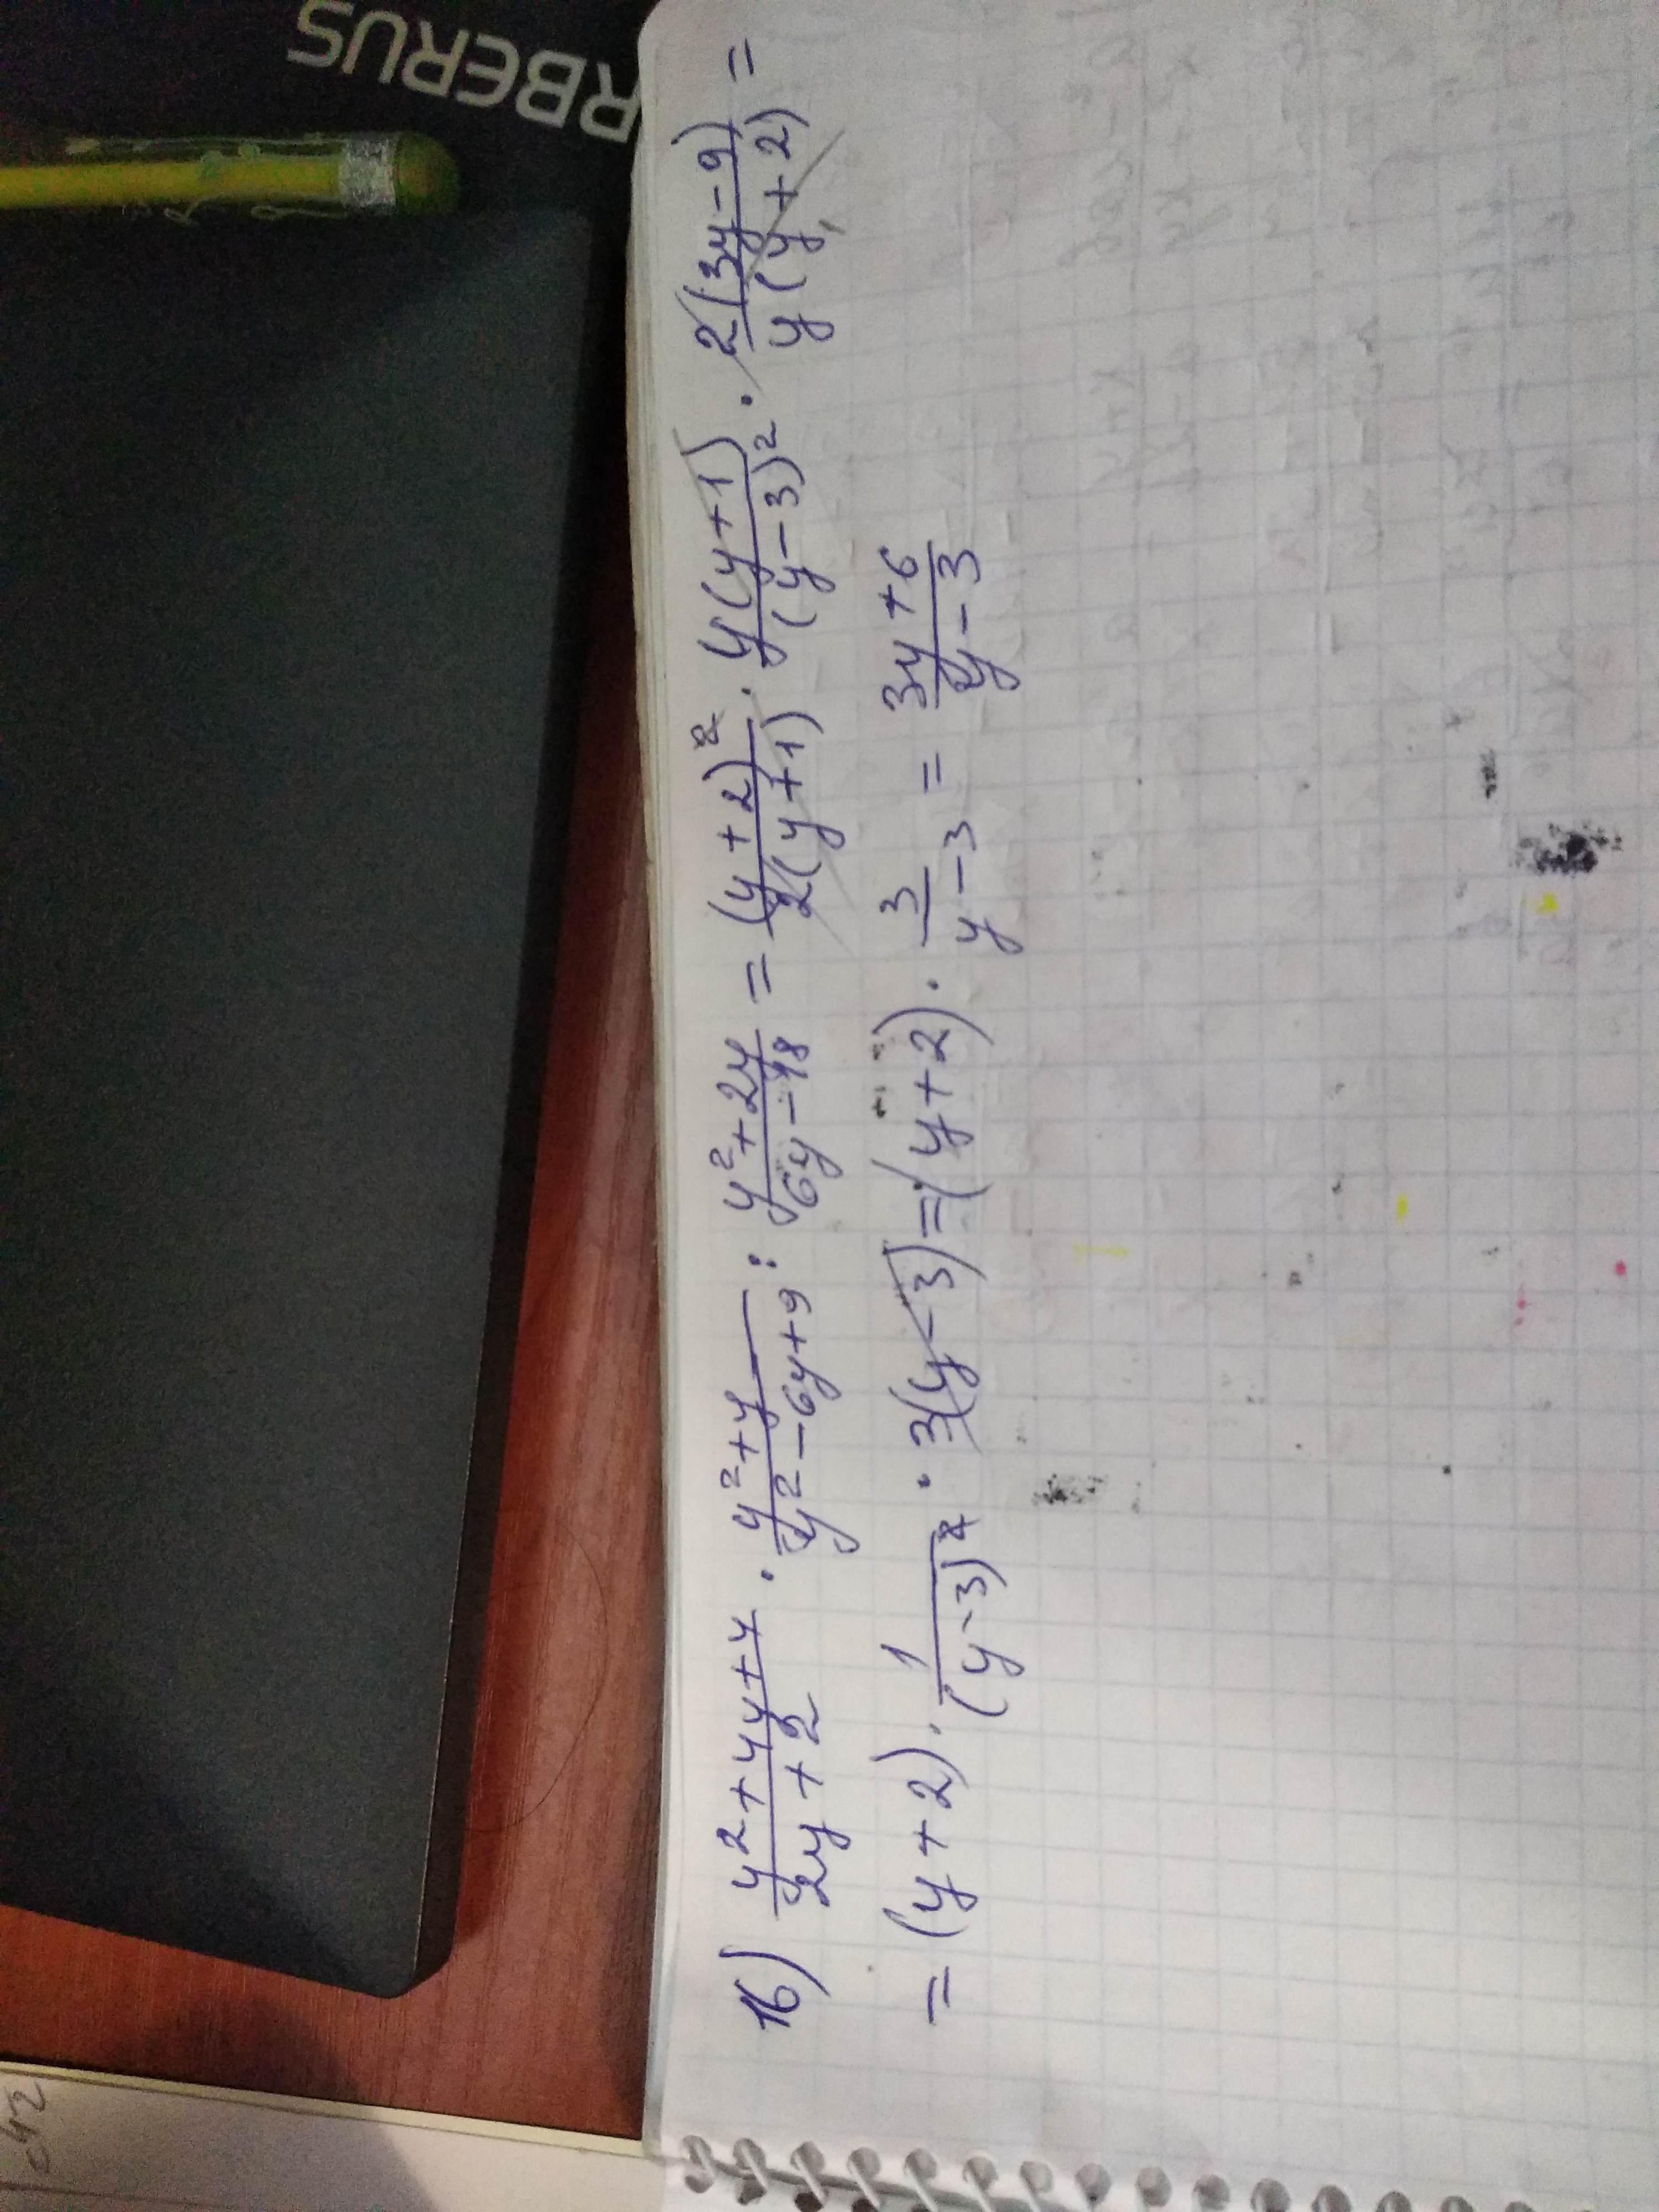 16) \frac{y^2+4y+4}{2y+2} \cdot \frac{y^2+y}{y^2-6y+9} : \frac{y^2+2y}{6y-18} = \frac{(y+2)^2}{2(y+1)} \cdot \frac{y(y+1)}{(y-3)^2} \cdot \frac{2(3y-9)}{y(y+2)} =
= (y+2) \cdot \frac{1}{(y-3)^2} \cdot 3(y-3) = (y+2) \cdot \frac{3}{y-3} = \frac{3y+6}{y-3}
RBERUS